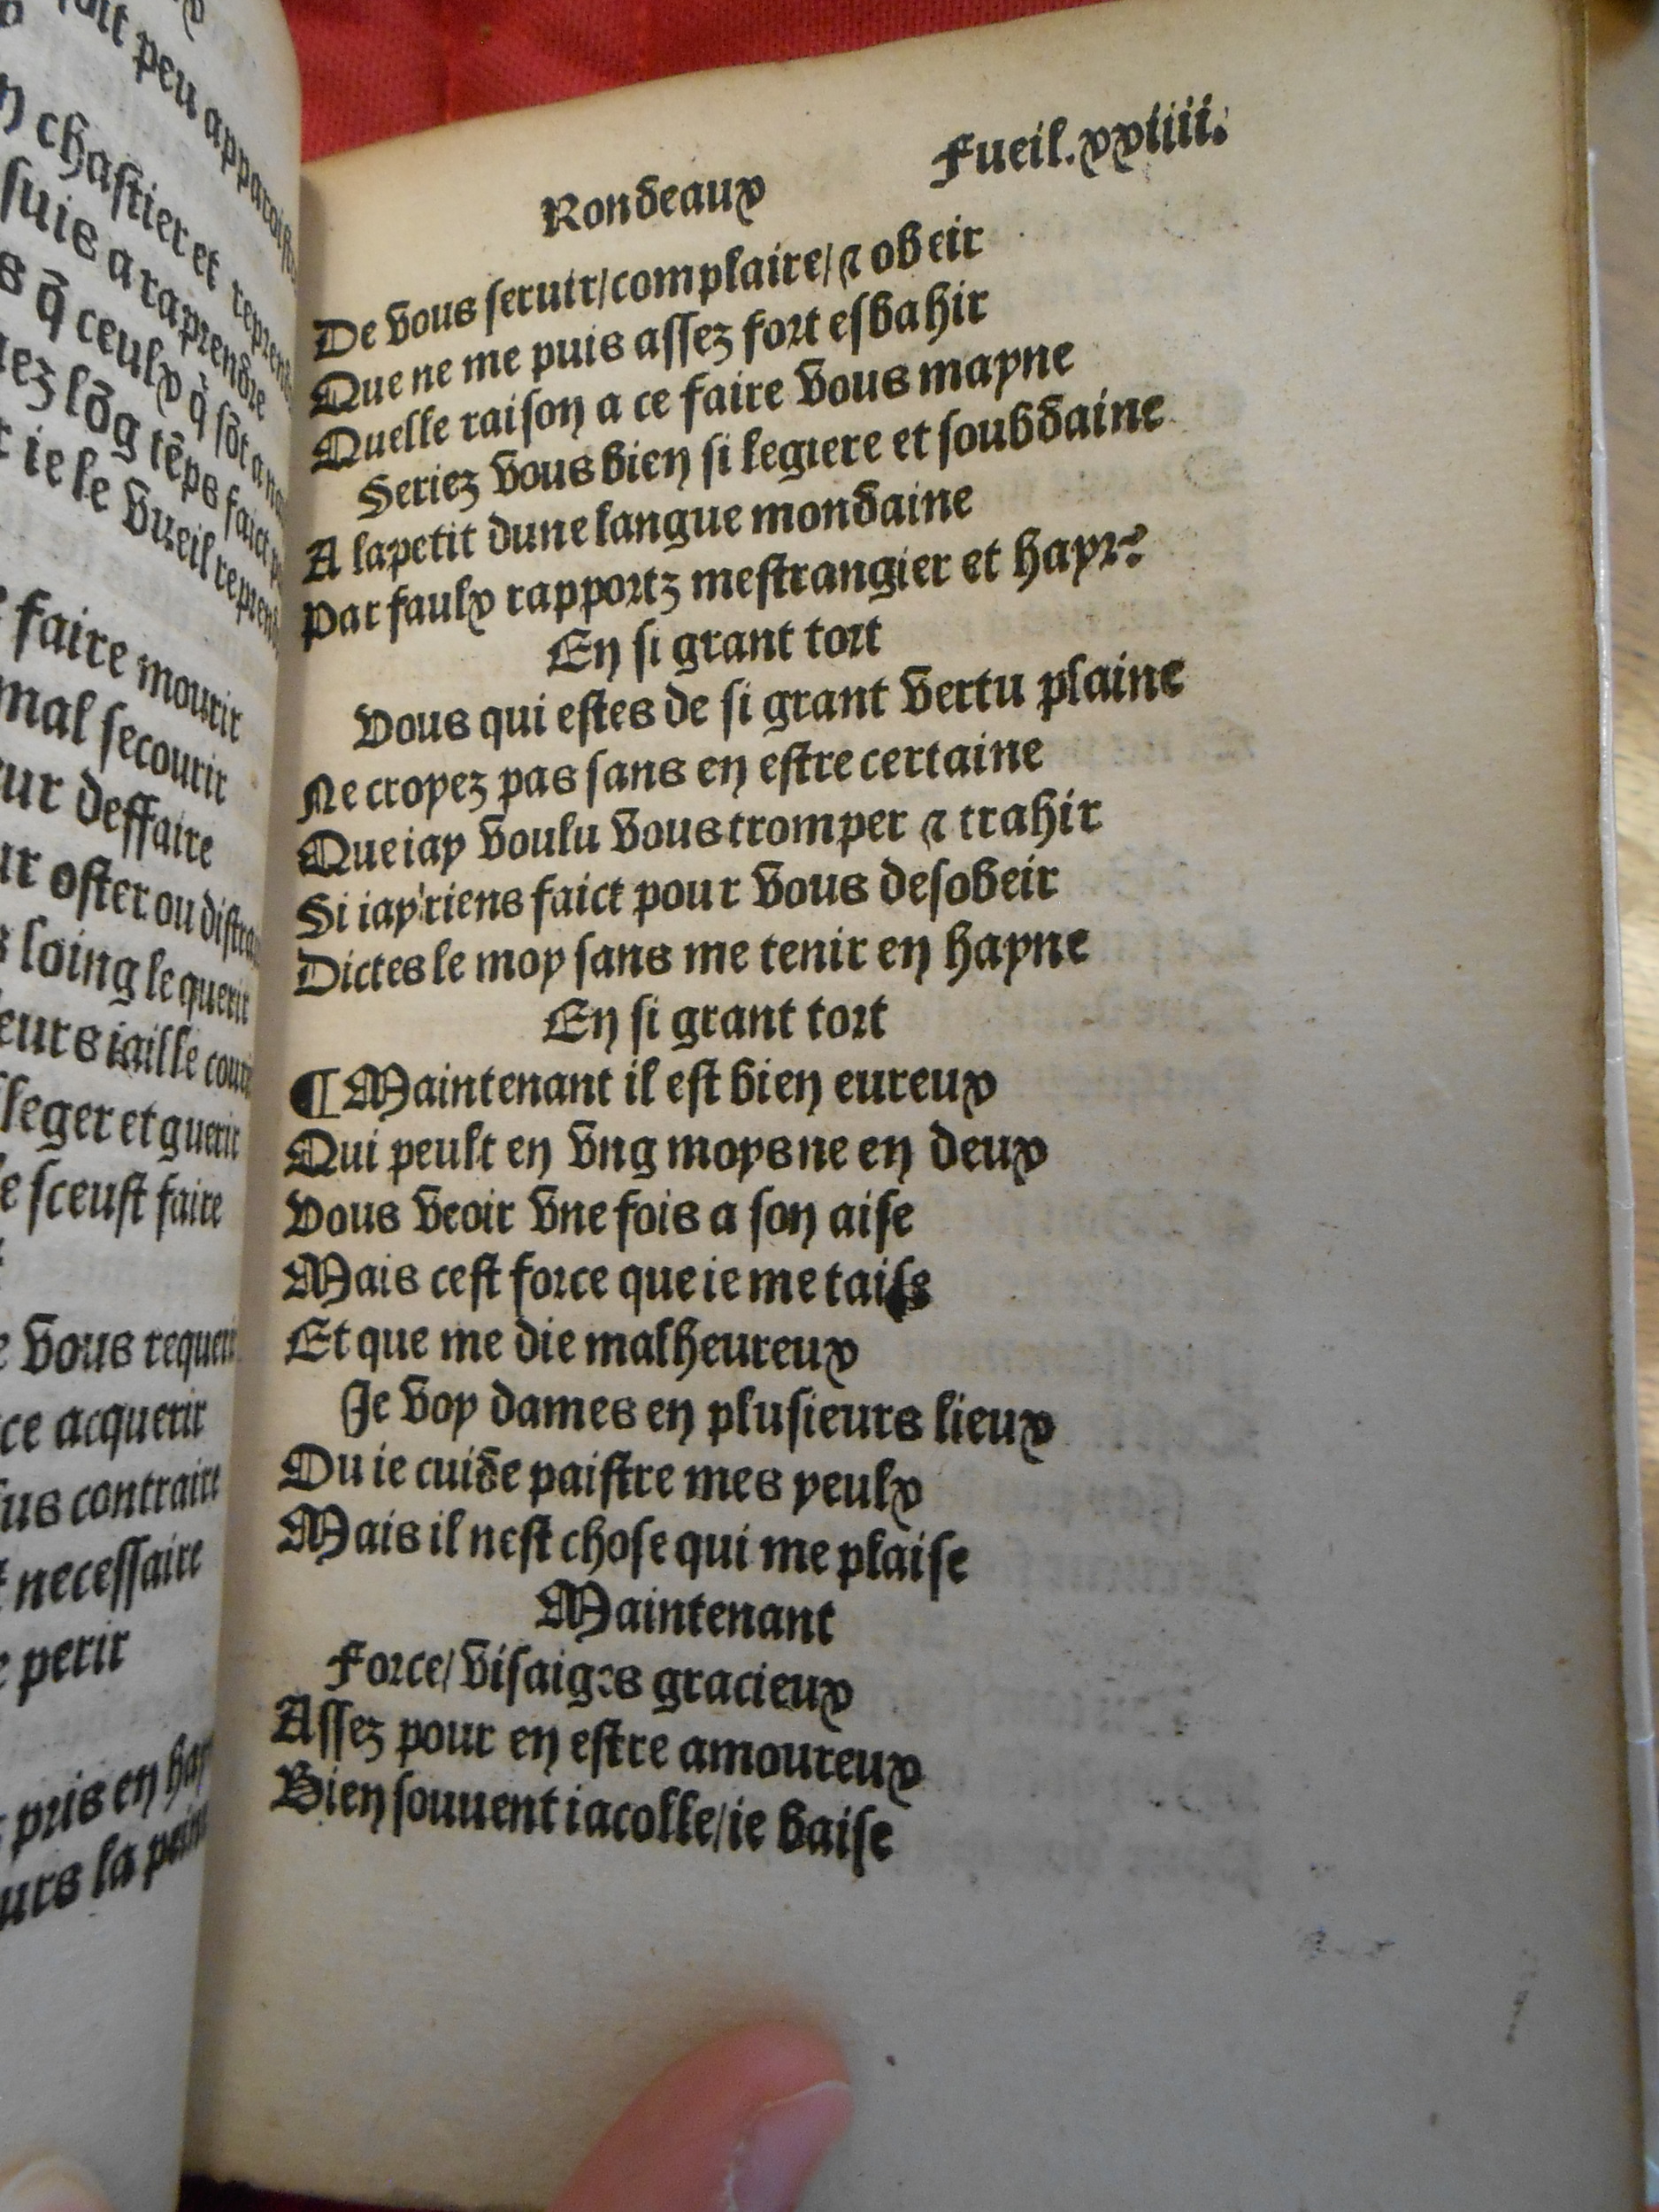 peu
chastier et
suis a raprendre
s q̄ ceulx q̇ sōt a
lōg tēps faict
ie le vueil
faire mourir
mal secourir
ur deffaire
ur oster ou
loing le querir
eurs iaille
leger et guerir
e sceust faire
vous
ce acquerir
us contraire
necessaire
perir
pris en
urs la
Rondeaux Fueil.xxiiii.
De vous seruir/complaire/⁊ obeir
Que ne me puis assez fort esbahir
Quelle raison a ce faire vous mayne
Seriez vous bien si legiere et soubdaine
A lapetit dune langue mondaine
Par faulx rapportz mestrangier et hayr?
En si grant tort
Vous qui estes de si grant vertu plaine
Ne croyez pas sans en estre certaine
Que iay voulu vous tromper ⁊ trahir
Si iay riens faict pour vous desobeir
Dictes le moy sans me tenir en hayne
En si grant tort
¶ Maintenant il est bien eureux
Qui peult en vng moys ne en deux
Vous veoir vne fois a son aise
Mais cest force que ie me taise
Et que me die malheureux
Je voy dames en plusieurs lieux
Ou ie cuide paistre mes yeulx
Mais il nest chose qui me plaise
Maintenant
Force/ visaiges gracieux
Assez pour en estre amoureux
Bien souuent iacolle/ie baise